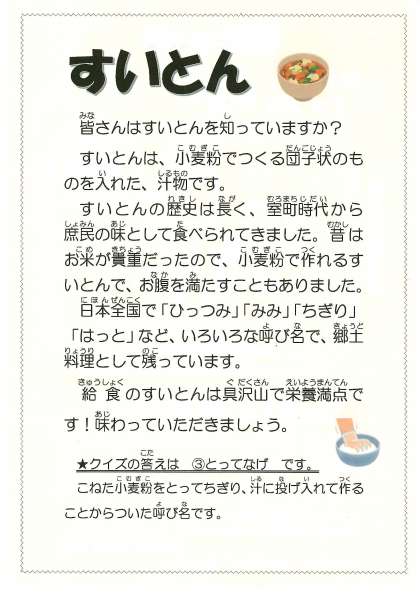 すいとん
皆さんはすいとんを知っていますか？
すいとんは、小麦粉でつくる団子状のも
のを入れた、汁物です。
すいとんの歴史は長く、室町時代から
庶民の味として食べられてきました。昔は
お米が貴重だったので、小麦粉で作れるす
いとんで、お腹を満たすこともありました。
日本全国で「ひっつみ」「みみ」「ちぎり」
「はっと」など、いろいろな呼び名で、郷土
料理として残っています。
給食のすいとんは具沢山で栄養満点で
す！味わっていただきましょう。
★クイズの答えは　③とってなげ　です。
こねた小麦粉をとってちぎり、汁に投げ入れて作る
ことからついた呼び名です。